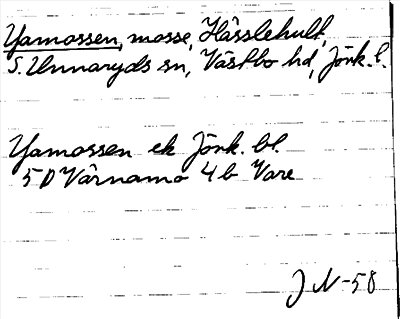 Yamossen, mosse, Hässlehult,
S. Unnaryds sn, Västbo hd, Jönk. l.
Yamossen ek Jönk. bl.
5 D Värnamo 4 b Vare
J N-58